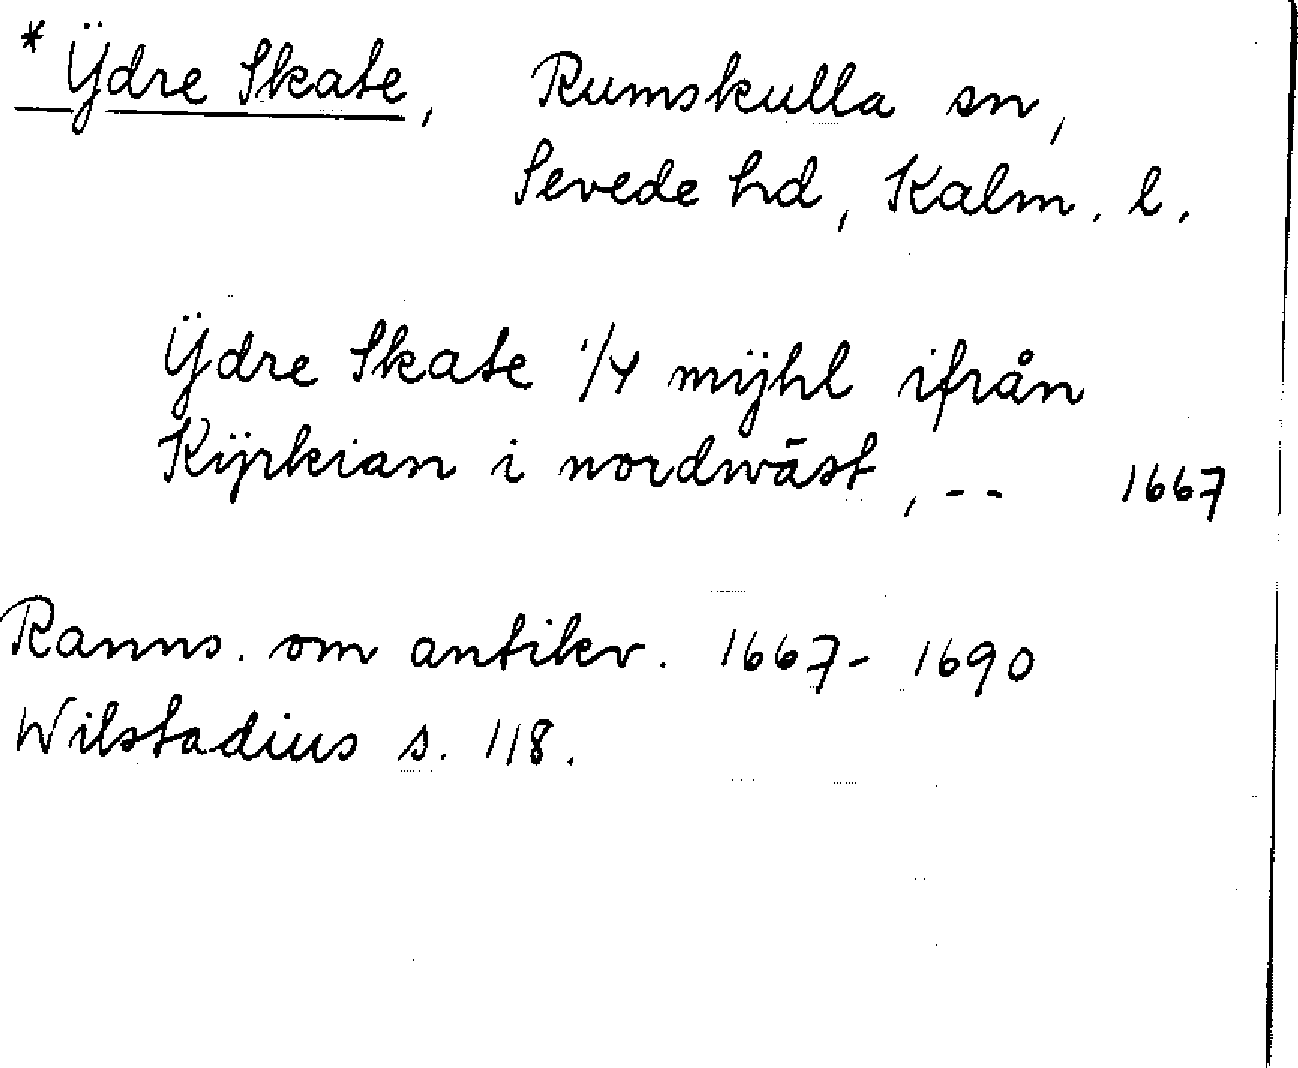 * Ÿdre Skate, Rumskulla sn,
Sevede hd, Kalm. l.
Ÿdre Skate 1/4 mÿhl ifrån
Kÿrkian i nordwäst, -- 1667
Ranns. om antikv. 1667-1690
Wilstadius s. 118.